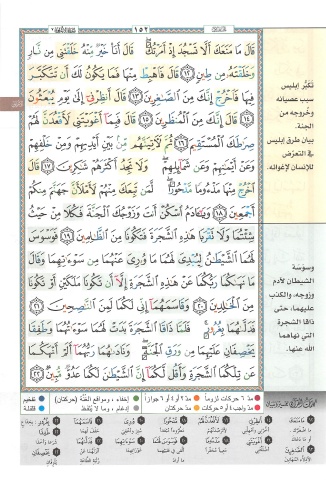 ١٥٢
قَالَ مَا مَنَعَكَ أَلَّا تَسْجُدَ إِذْ أَمَرْتُكَ ۖ قَالَ أَنَا۠ خَيْرٌ مِّنْهُ خَلَقْتَنِى مِن نَّارٍ
وَخَلَقْتَهُۥ مِن طِينٍ ١٢ قَالَ فَٱهْبِطْ مِنْهَا فَمَا يَكُونُ لَكَ أَن تَتَكَبَّرَ
فِيهَا فَٱخْرُجْ إِنَّكَ مِنَ ٱلصَّـٰغِرِينَ ١٣ قَالَ أَنظِرْنِىٓ إِلَىٰ يَوْمِ يُبْعَثُونَ
١٤ قَالَ إِنَّكَ مِنَ ٱلْمُنظَرِينَ ١٥ قَالَ فَبِمَآ أَغْوَيْتَنِى لَأَقْعُدَنَّ لَهُمْ
صِرَٰطَكَ ٱلْمُسْتَقِيمَ ١٦ ثُمَّ لَـَٔاتِيَنَّهُم مِّنۢ بَيْنِ أَيْدِيهِمْ وَمِنْ خَلْفِهِمْ
وَعَنْ أَيْمَـٰنِهِمْ وَعَن شَمَآئِلِهِمْ ۖ وَلَا تَجِدُ أَكْثَرَهُمْ شَـٰكِرِينَ ١٧ قَالَ
ٱخْرُجْ مِنْهَا مَذْءُومًا مَّدْحُورًا ۖ لَّمَن تَبِعَكَ مِنْهُمْ لَأَمْلَأَنَّ جَهَنَّمَ مِنكُمْ
أَجْمَعِينَ ١٨ وَيَـٰٓـَٔادَمُ ٱسْكُنْ أَنتَ وَزَوْجُكَ ٱلْجَنَّةَ فَكُلَا مِنْ حَيْثُ
شِئْتُمَا وَلَا تَقْرَبَا هَـٰذِهِ ٱلشَّجَرَةَ فَتَكُونَا مِنَ ٱلظَّـٰلِمِينَ ١٩ فَوَسْوَسَ
لَهُمَا ٱلشَّيْطَـٰنُ لِيُبْدِىَ لَهُمَا مَا وُۥرِىَ عَنْهُمَا مِن سَوْءَٰتِهِمَا وَقَالَ
مَا نَهَىٰكُمَا رَبُّكُمَا عَنْ هَـٰذِهِ ٱلشَّجَرَةِ إِلَّآ أَن تَكُونَا مَلَكَيْنِ أَوْ تَكُونَا
مِنَ ٱلْخَـٰلِدِينَ ٢٠ وَقَاسَمَهُمَآ إِنِّى لَكُمَا لَمِنَ ٱلنَّـٰصِحِينَ ٢١
فَدَلَّىٰهُمَا بِغُرُورٍ ۚ فَلَمَّا ذَاقَا ٱلشَّجَرَةَ بَدَتْ لَهُمَا سَوْءَٰتُهُمَا وَطَفِقَا
يَخْصِفَانِ عَلَيْهِمَا مِن وَرَقِ ٱلْجَنَّةِ ۖ وَنَادَىٰهُمَا رَبُّهُمَآ أَلَمْ أَنْهَكُمَا
عَن تِلْكُمَا ٱلشَّجَرَةِ وَأَقُل لَّكُمَآ إِنَّ ٱلشَّيْطَـٰنَ لَكُمَا عَدُوٌّ مُّبِينٌ ٢٢
تكبّر إبليس
سبب عصيانه
وخروجه من
الجنة.
بيان طرق إبليس
في التعرّض
للإنسان لإغوائه.
وسوسة
الشيطان لآدم
وزوجه، والكذب
عليهما، حتى
ذاقا الشجرة
التي نهاهما
الله عنها.
مدّ ٦ حركات لزوماً
مدّ ٢ أو ٤ أو ٦ جوازاً
إخفاء، ومواقع الغُنَّة (حركتان)
تفخيم
مدّ واجب ٤ أو ٥ حركات
مدّ حركتان
إدغام، وما لا يُلفَظ
قلقلة